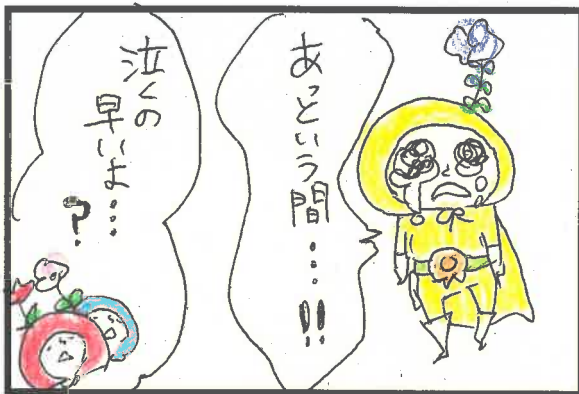 あっという間…!!
泣くの
早いよ…
?